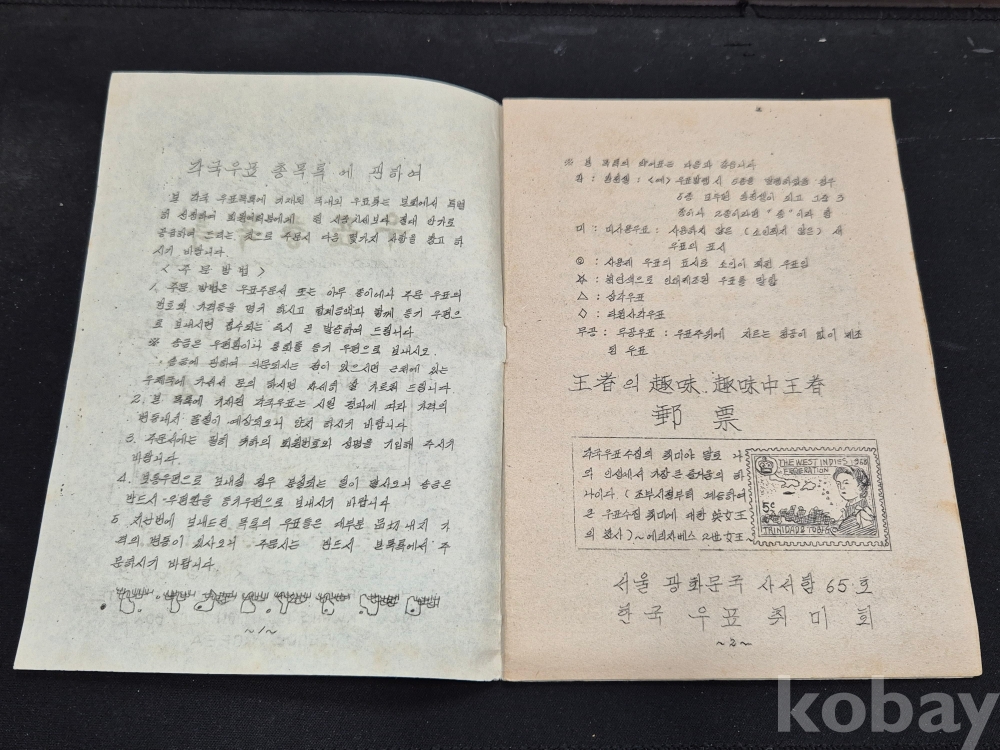 각국우표 총목록에 관하여
본 각국 우표목록에 기재된 국내외 우표류는 본회에서 특별
히 선정하여 회원여러분에게 현 시중시세보다 절대 안가로
봉급하여 드리는 것으로 주문시 다음 몇가지 사항을 참고 하
시기 바랍니다.
〈주문방법〉
1. 주문 방법은 우표주문서 또는 아무 종이에나 주문 우표의
번호와 가격등을 명기 하시고 합계금액과 함께 등기 우편으
로 보내시면 접수되는 즉시 곧 발송하여 드립니다.
※ 송금은 우편환이나 통화를 등기 우편으로 보내시오.
송금에 관하여 의문되시는 점이 있으시면 근처에 있는
우체국에 가셔서 문의 하시면 자세히 잘 가르쳐 드립니다.
2. 본 목록에 기재된 각국우표는 시일 경과에 따라 가격의
변동내지 품절이 예상되오니 양지 하시기 바랍니다.
3. 주문서에는 필히 귀하의 회원번호와 성명을 기입해 주시기
바랍니다.
4. 보통우편으로 보내실 경우 분실되는 일이 많사오니 송금은
반드시 우편환을 등기우편으로 보내시기 바랍니다.
5. 지난번에 보내드린 목록의 우표들은 대부분 품절내지 가
격의 변동이 있사오니 주문시는 반드시 본목록에서 주
문하시기 바랍니다.
~1~
※ 본 목록의 약어표는 다음과 같습니다
완 : 완전셑 : 〈예〉 우표발행시 6종을 발행하였을 경우
6종 모두면 완전셑이 되고 그중 3
종이나 2종이라면 "종"이라 함
미 : 미사용우표 : 사용하지 않은 (소인찍지 않은) 새
우표의 표시
◎ : 사용제 우표의 표시로 소인이 찍힌 우표임
☆ : 천연색으로 인쇄제조된 우표를 말함
△ : 삼각우표
◇ : 마름사각우표
무공 : 무공우표 : 우표주위에 자르는 침공이 없이 제조
된 우표
王者의 趣味, 趣味中王者
郵票
각국우표수집의 취미야 말로 나
의 인생에서 가장 큰 즐거움의 하
나이다 (조부시절부터 계승하여
온 우표수집 취미에 대한 英女王
의 말씀) ~에리자베스 2世女王
THE WEST INDIES 1958
FEDERATION
5¢
TRINIDAD & TOBAGO
서울 광화문국 사서함 65호
한국 우표 취미회
~2~
kobay